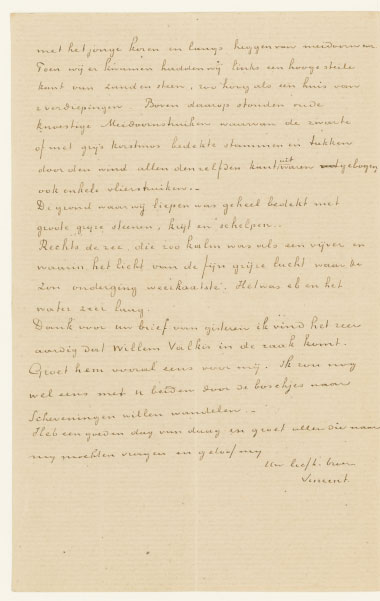 met het jonge koren en langs heggen van meidoorn enz.
Toen wij er kwamen hadden wij links een hooge steile
kant van zand en steen, zoo hoog als een huis van
2 verdiepingen Boven daarop stonden oude
knoestige Meidoornstruiken waarvan de zwarte
of met grijs korstmos bedekte stammen en takken
door den wind allen denzelfden kant uit waren gebogen
ook enkele vlierstruiken.-
De grond waar wij liepen was geheel bedekt met
groote grijze steenen, krijt en schelpen.
Rechts de zee, die zoo kalm was als een vijver en
waarin het licht van de fijn grijze lucht waar de
zon onderging weerkaatste. Het was eb en het
water zeer laag.
Dank voor uw brief van gisteren ik vind het zeer
aardig dat Willem Valkis in de zaak komt.
Groet hem vooral eens voor mij. Ik zou nog
wel eens met u beiden door de boschjes naar
Scheveningen willen wandelen.-
Heb een goeden dag van daag en groet allen die naar
mij mochten vragen en geloof mij
Uw liefh. broer
Vincent